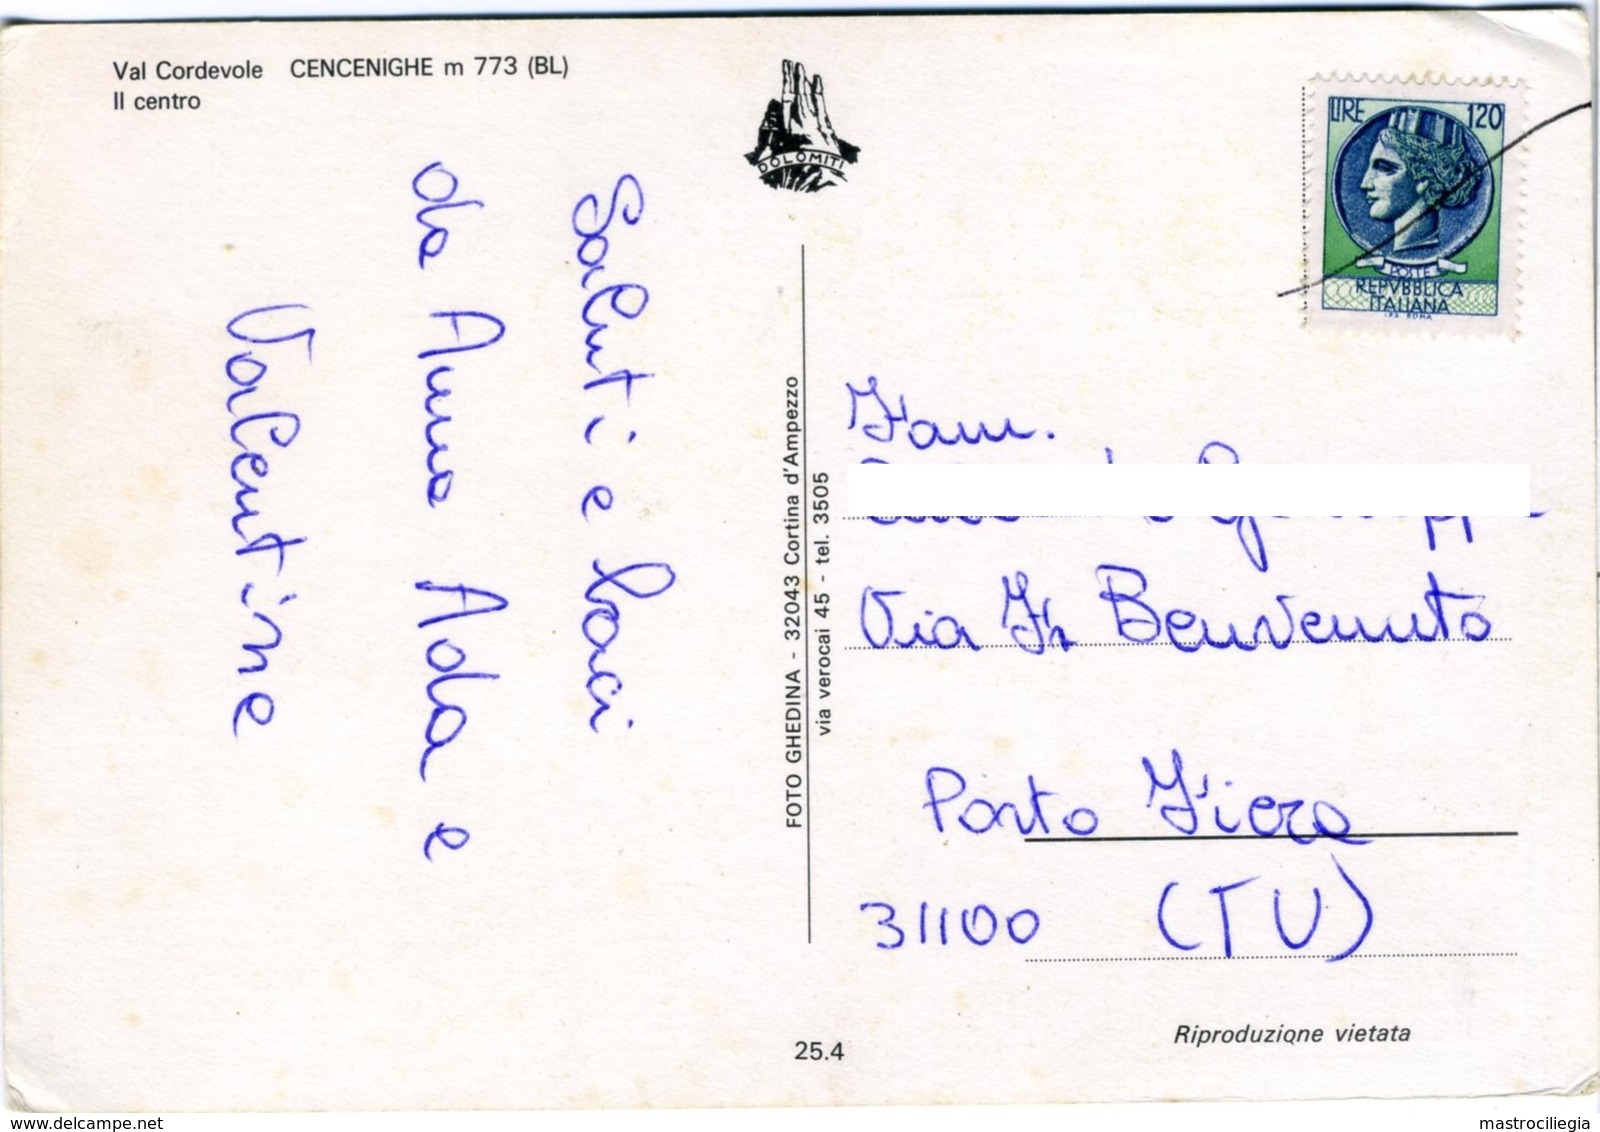 Val Cordevole CENCENIGHE m 773 (BL)
Il centro
DOLOMITI
LIRE 120
POSTE
REPVBBLICA
ITALIANA
I.P.S. ROMA
Saluti e baci
da Anna Ada e
Valentine
FOTO GHEDINA - 32043 Cortina d'Ampezzo
via verocai 45 - tel. 3505
Fam.
Via Fr Benvenuto
Porto Fiera
31100 (TV)
Riproduzione vietata
25.4
www.delcampe.net
mastrociliegia